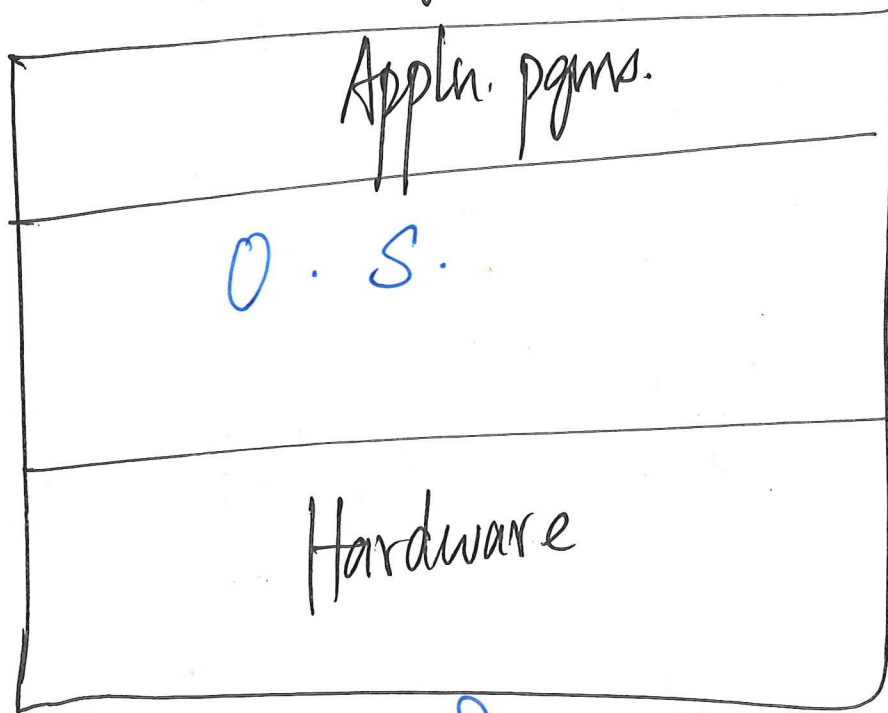 Appln. pgms.
O. S.
Hardware